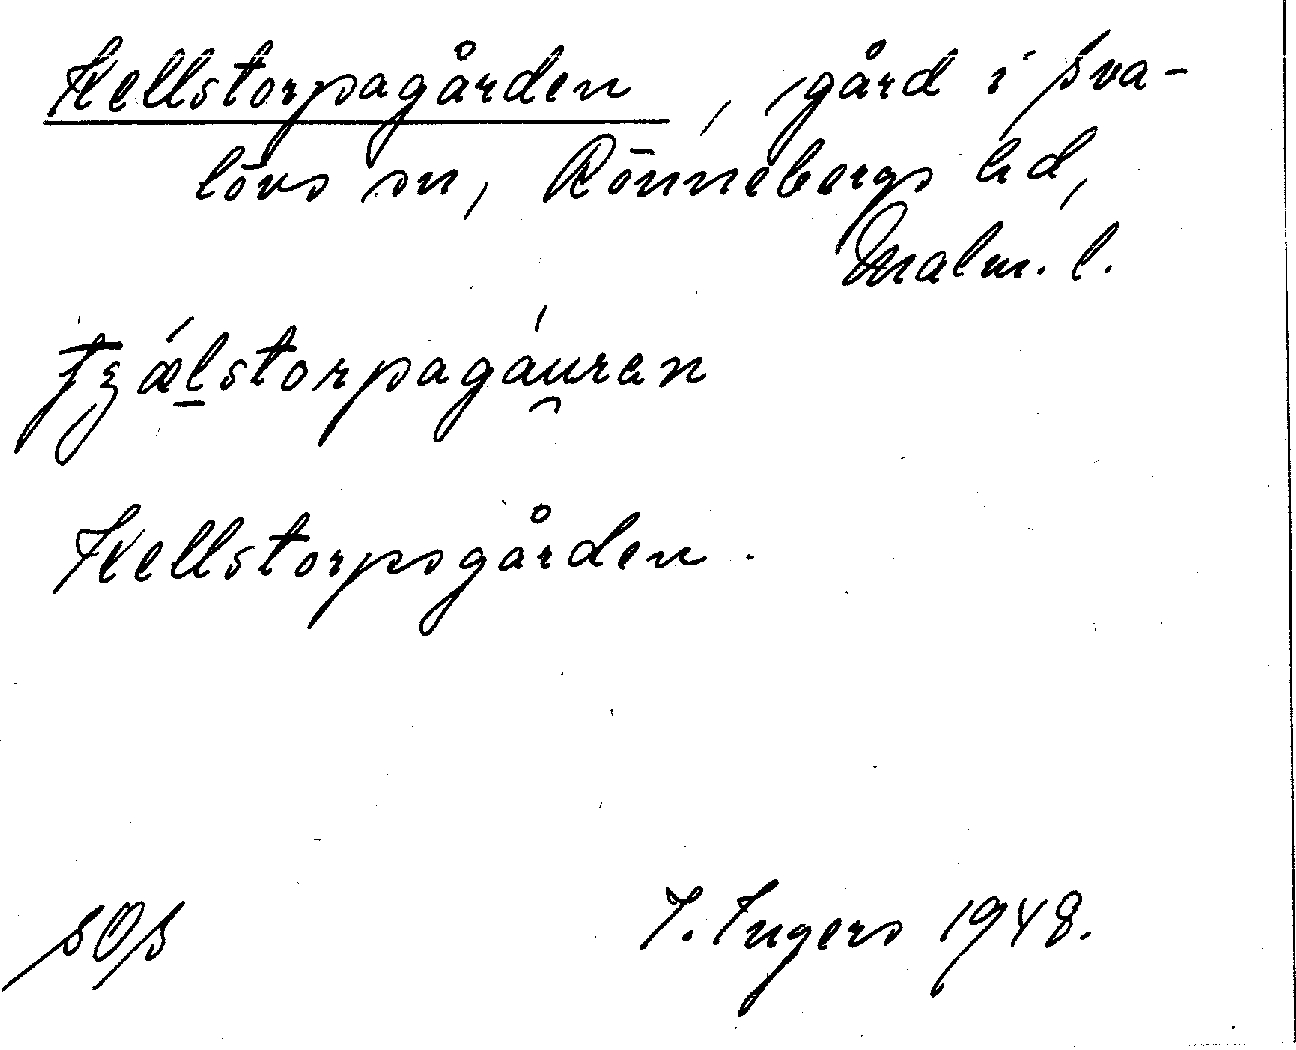 Kellstorpagården, gård i Sva-
lövs sn, Rönnebergs hd,
Malm. l.
tʒǽl̲storpagáu̯ran
Kellstorpsgården.
SOS I. Ingers 1948.